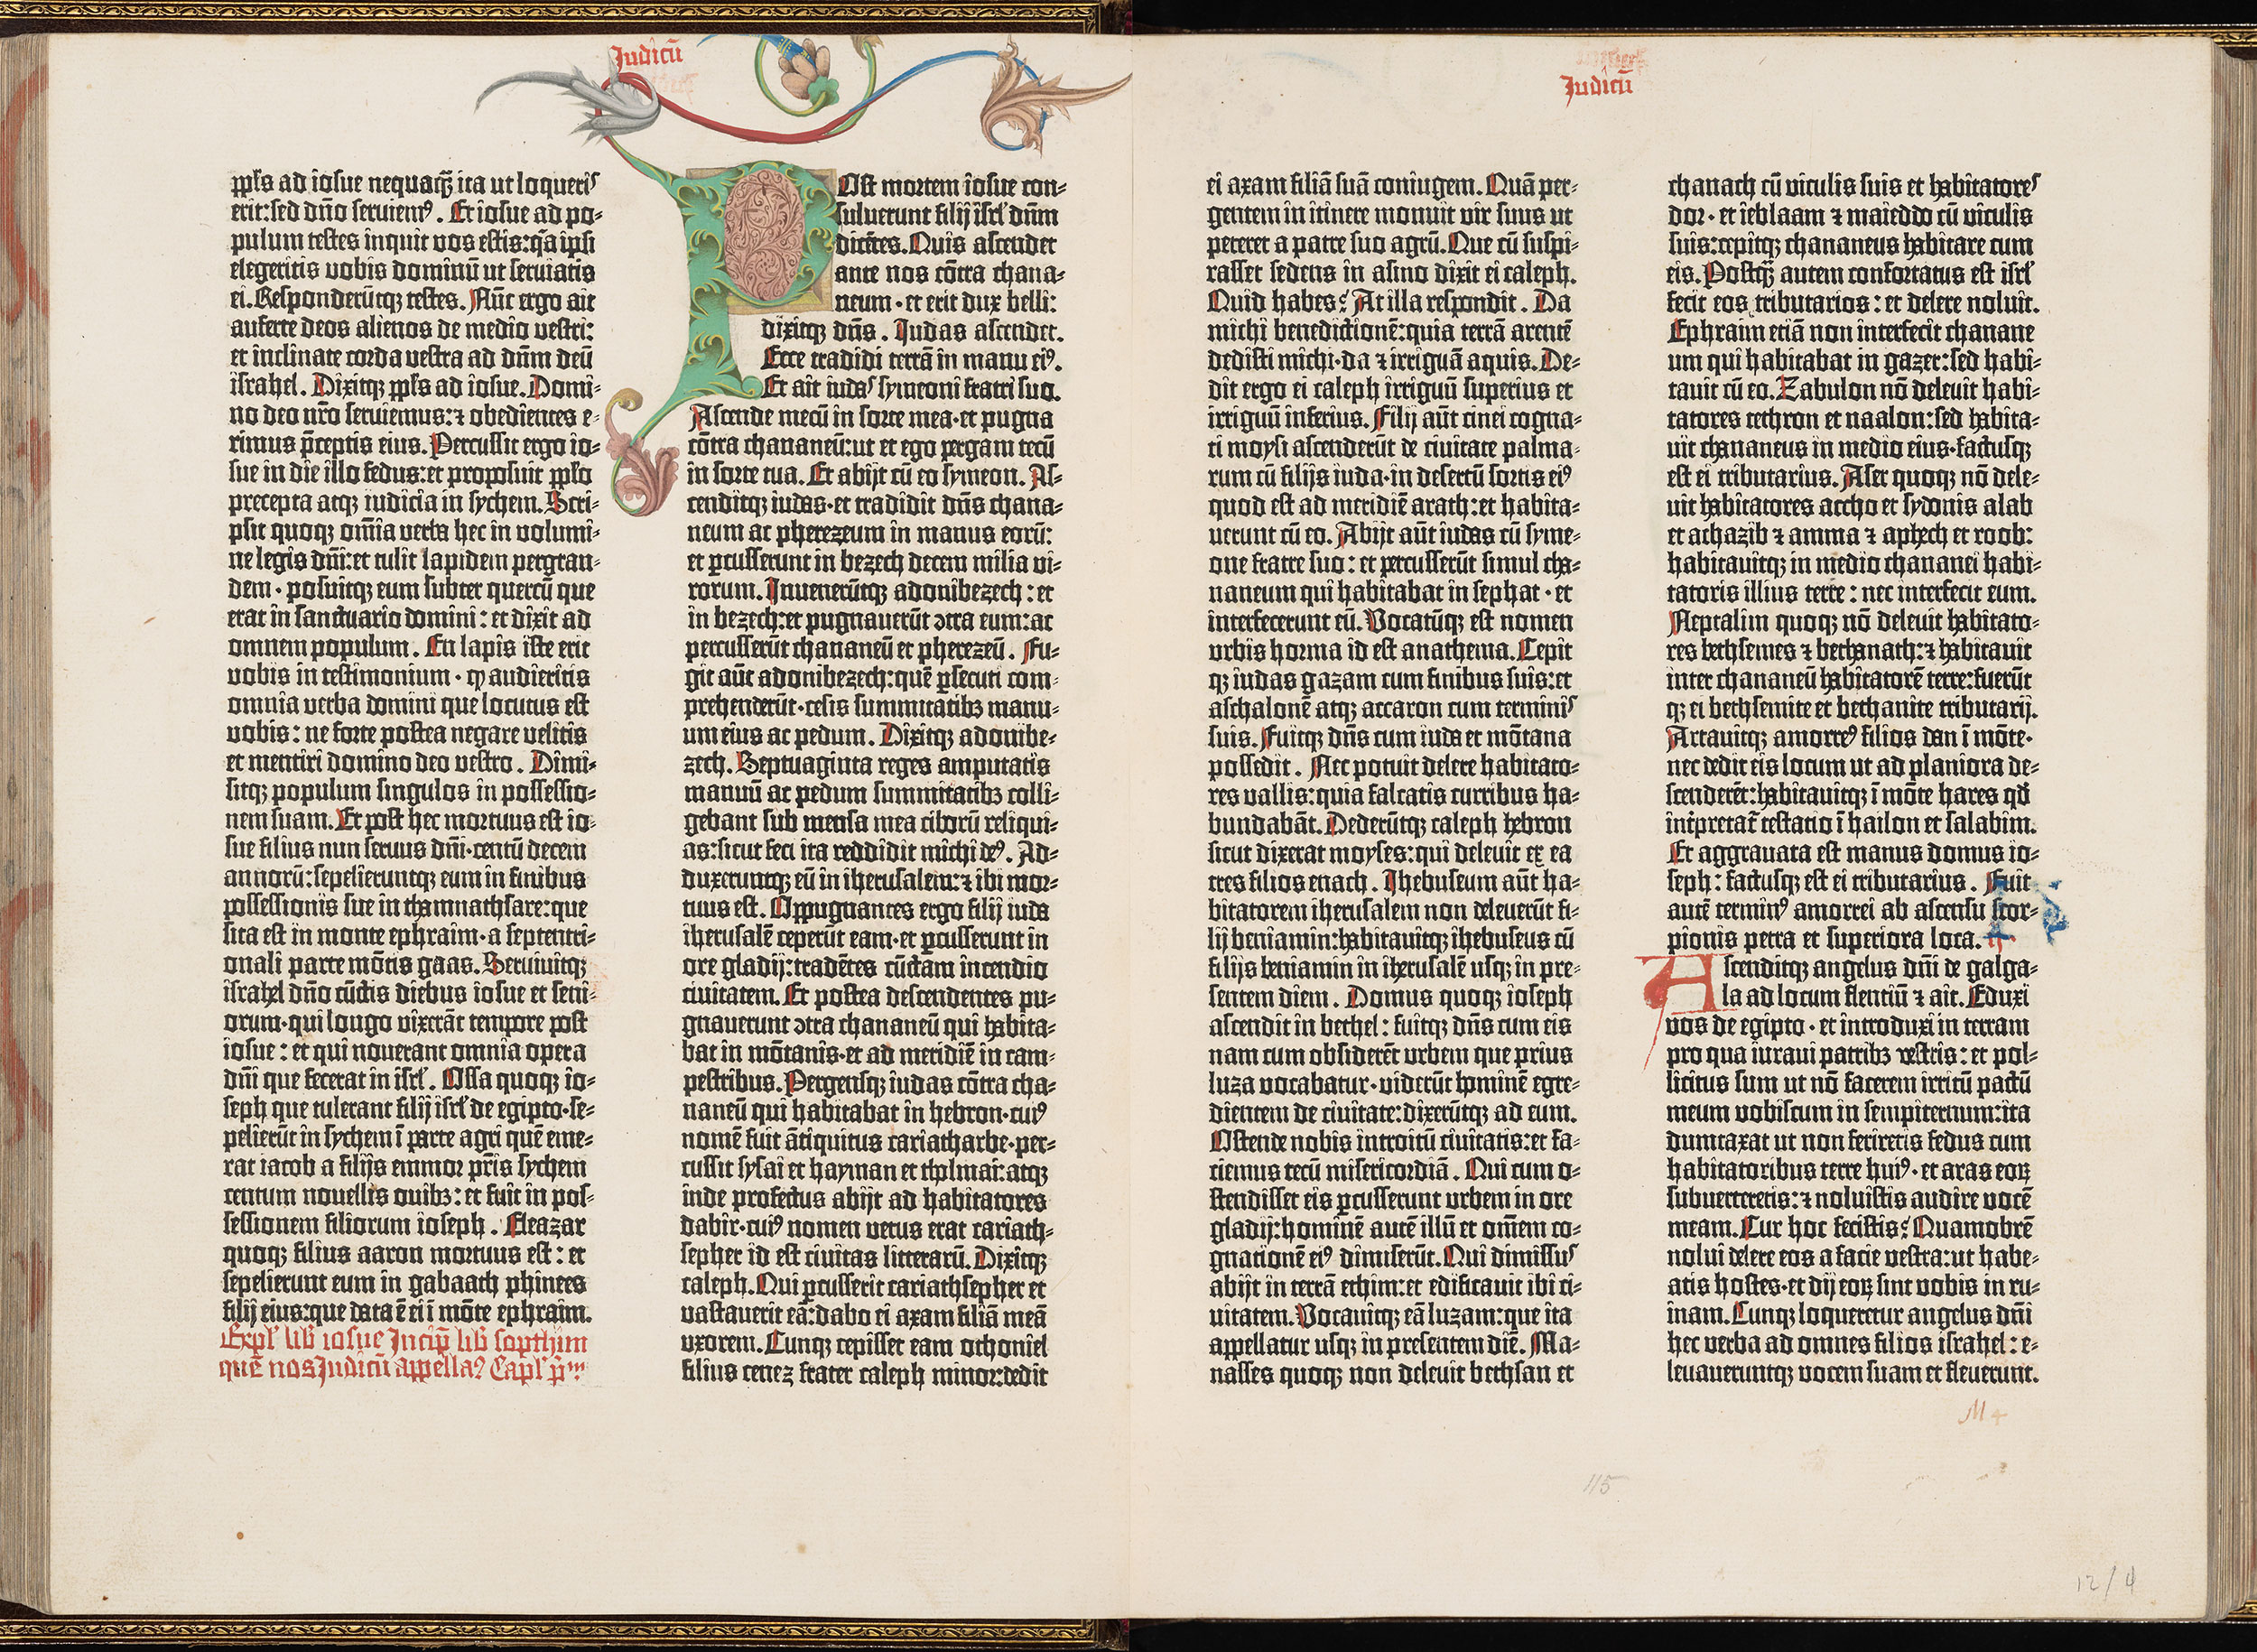 Judicū
pp̄ls ad iosue nequaq̄ ita ut loqueris
erit: sed dño seruiemꝰ. Et iosue ad po-
pulum testes inquit vos estis: q̄a ipsi
elegeritis vobis dominū ut seruiatis
ei. Responderūtqꝫ testes. Nūc ergo ait
auferte deos alienos de medio vestri:
et inclinate corda vestra ad dūm deū
israhel. Dixitqꝫ pp̄ls ad iosue. Domi-
no deo nr̄o seruiemus: ⁊ obedientes e-
rimus p̄ceptis eius. Percussit ergo io-
sue in die illo fedus: et proposuit pp̄lo
precepta atqꝫ iudicia in sychem. Scri-
psit quoqꝫ om̄ia verba hec in volumi-
ne legis dn̄i: et tulit lapidem pergran-
dem · posuitqꝫ eum subter quercū que
erat in sanctuario domini: et dixit ad
omnem populum. En lapis iste erit
vobis in testimonium · ꝙ audieritis
omnia verba domini que locutus est
vobis: ne forte postea negare velitis
et mentiri domino deo vestro. Dimi-
sitqꝫ populum singulos in possessio-
nem suam. Et post hec mortuus est io-
sue filius nun seruus dn̄i · centū decem
annorū: sepelieruntqꝫ eum in finibus
possessionis sue in thamnathsare: que
sita est in monte ephraim · a septentri-
onali parte mōtis gaas. Seruiuitqꝫ
israhel dn̄o cūctis diebus iosue et seni-
orum · qui longo vixerāt tempore post
iosue: et qui nouerant omnia opera
dn̄i que fecerat in isrl̄. Ossa quoqꝫ io-
seph que tulerant filij isrl̄ de egipto · se-
pelierūt in sychem ī parte agri quē eme-
rat iacob a filijs emmor pr̄is sychem
centum nouellis ouibꝫ: et fuit in pos-
sessionem filiorum ioseph. Eleazar
quoqꝫ filius aaron mortuus est: et
sepelierunt eum in gabaath phinees
filij eius: que data ē ei ī mōte ephraim.
Expl' lib iosue Incip̄ lib septimꝰ
quē nos Judicū appellaꝰ Capl' p̄m
Post mortem iosue con-
suluerunt filij isrl̄ dūm
dicētes. Quis ascendet
ante nos cōtra chana-
neum · et erit dux belli:
dixitqꝫ dn̄s. Judas ascendet.
Ecce tradidi terrā in manu eiꝰ.
Et ait iudas symeoni fratri suo.
Ascende mecū in sorte mea · et pugna
cōtra chananeū: ut et ego pergam tecū
in sorte tua. Et abijt cū eo symeon. As-
cenditqꝫ iudas · et tradidit dn̄s chana-
neum ac pherezeum in manus eorū:
et ꝑcusserunt in bezech decem milia vi-
rorum. Inuenerūtqꝫ adonibezech: et
in bezech: et pugnauerūt ↄtra eum: ac
percusserūt chananeū et pherezeū. Fu-
git aūt adonibezech: quē ꝑsecuti com-
prehenderūt · cesis summitatibꝫ manu-
um eius ac pedum. Dixitqꝫ adonibe-
zech. Septuaginta reges amputatis
manuū ac pedum summitatibꝫ colli-
gebant sub mensa mea ciborū reliqui-
as: sicut feci ita reddidit michi deꝰ. Ad-
duxeruntqꝫ eū in iherusalem: ⁊ ibi mor-
tuus est. Oppugnantes ergo filij iuda
iherusalē ceperūt eam · et ꝑcusserunt in
ore gladij: tradētes cūctam incendio
ciuitatem. Et postea descendentes pu-
gnauerunt ↄtra chananeū qui habita-
bat in mōtanis · et ad meridiē in cam-
pestribus. Pergensqꝫ iudas cōtra cha-
naneū qui habitabat in hebron · cuiꝰ
nomē fuit ātiquitus cariatharbe · per-
cussit sysai et hayman et tholmai: atqꝫ
inde profectus abijt ad habitatores
dabir · cuiꝰ nomen vetus erat cariath-
sepher id est ciuitas litterarū. Dixitqꝫ
caleph. Qui ꝑcusserit cariathsepher et
vastauerit eā: dabo ei axam filiā meā
vxorem. Cunqꝫ cepisset eam othoniel
filius cenez frater caleph minor: dedit
Judicū
ei axam filiā suā coniugem. Quā per-
gentem in itinere monuit vir suus ut
peteret a patre suo agrū. Que cū suspi-
rasset sedens in asino dixit ei caleph.
Quid habes? At illa respondit. Da
michi benedictionē: quia terrā arentē
dedisti michi · da ⁊ irriguā aquis. De-
dit ergo ei caleph irriguū superius et
irriguū inferius. Filij aūt cinei cogna-
ti moysi ascenderūt de ciuitate palma-
rum cū filijs iuda · in desertū sortis eiꝰ
quod est ad meridiē arath: et habita-
uerunt cū eo. Abijt aūt iudas cū syme-
one fratre suo: et percusserūt simul cha-
naneum qui habitabat in sephat · et
interfecerunt eū. Vocatūqꝫ est nomen
vrbis horma id est anathema. Cepit
qꝫ iudas gazam cum finibus suis: et
aschalonē atqꝫ accaron cum terminis
suis. Fuitqꝫ dn̄s cum iuda et mōtana
possedit. Nec potuit delere habitato-
res vallis: quia falcatis curribus ha-
bundabāt. Dederūtqꝫ caleph hebron
sicut dixerat moyses: qui deleuit ex ea
tres filios enach. Jhebuseum aūt ha-
bitatorem iherusalem non deleuerūt fi-
lij beniamin: habitauitqꝫ ihebuseus cū
filijs beniamin in iherusalē usqꝫ in pre-
sentem diem. Domus quoqꝫ ioseph
ascendit in bethel: fuitqꝫ dn̄s cum eis
nam cum obsiderēt vrbem que prius
luza vocabatur · viderūt hominē egre-
dientem de ciuitate: dixerūtqꝫ ad eum.
Ostende nobis introitū ciuitatis: et fa-
ciemus tecū misericordiā. Qui cum o-
stendisset eis ꝑcusserunt vrbem in ore
gladij: hominē autē illū et om̄em co-
gnationē eiꝰ dimiserūt. Qui dimissus
abijt in terrā ethim: et edificauit ibi ci-
uitatem. Vocauitqꝫ eā luzam: que ita
appellatur usqꝫ in presentem diē. Ma-
nasses quoqꝫ non deleuit bethsan et
chanach cū viculis suis et habitatores
dor · et ieblaam ⁊ maieddo cū viculis
suis: cepitqꝫ chananeus habitare cum
eis. Postq̄ autem confortatus est isrl̄
fecit eos tributarios: et delere noluit.
Ephraim etiā non interfecit chanane
um qui habitabat in gazer: sed habi-
tauit cū eo. Zabulon nō deleuit habi-
tatores cethron et naalon: sed habita-
uit chananeus in medio eius · factusqꝫ
est ei tributarius. Aser quoqꝫ nō dele-
uit habitatores accho et sydonis alab
et achazib ⁊ amma ⁊ aphech et roob:
habitauitqꝫ in medio chananei habi-
tatoris illius terre: nec interfecit eum.
Neptalim quoqꝫ nō deleuit habitato-
res bethsemes ⁊ bethanath: ⁊ habitauit
inter chananeū habitatorē terre: fuerūt
qꝫ ei bethsemite et bethanite tributarij.
Artauitqꝫ amorreꝰ filios dan ī mōte ·
nec dedit eis locum ut ad planiora de-
scenderēt: habitauitqꝫ ī mōte hares qđ
īnterpretat̄ testatio ī hailon et salabim.
Et aggrauata est manus domus io-
seph: factusqꝫ est ei tributarius. Fuit
autē terminꝰ amorrei ab ascensu scor-
pionis petra et superiora loca. ij
Ascenditqꝫ angelus dn̄i de galga-
la ad locum flentiū ⁊ ait. Eduxi
vos de egipto · et introduxi in terram
pro qua iuraui patribꝫ vestris: et pol-
licitus sum ut nō facerem irritū pactū
meum vobiscum in sempiternum: ita
dumtaxat ut non feriretis fedus cum
habitatoribus terre huiꝰ · et aras eoꝝ
subuerteretis: ⁊ noluistis audire vocē
meam. Cur hoc fecistis? Quamobrē
nolui delere eos a facie vestra: ut habe-
atis hostes · et dij eoꝝ sint vobis in ru-
inam. Cunqꝫ loqueretur angelus dn̄i
hec verba ad omnes filios israhel: e-
leuaueruntqꝫ vocem suam et fleuerunt.
M 4
115
12/4